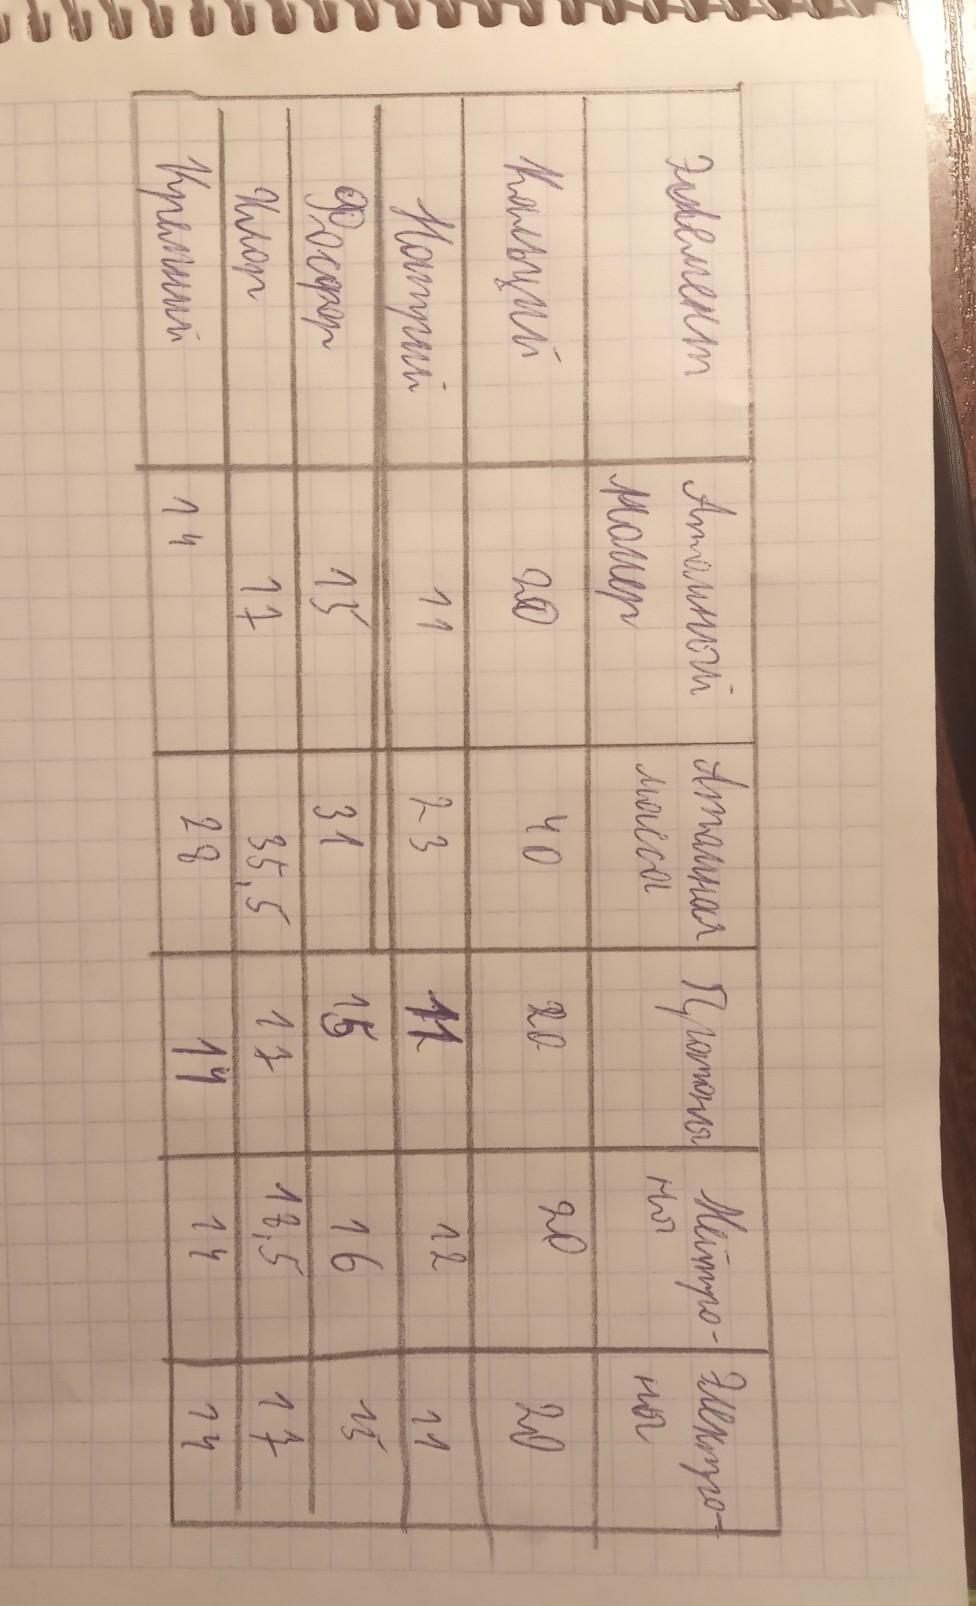 Элемент Атомный номер Атомная масса Протоны Нейтро-ны Электро-ны
Кальций 20 40 20 20 20
Натрий 11 23 11 12 11
Фосфор 15 31 15 16 15
Хлор 17 35,5 17 18,5 17
Кремний 14 28 14 14 14